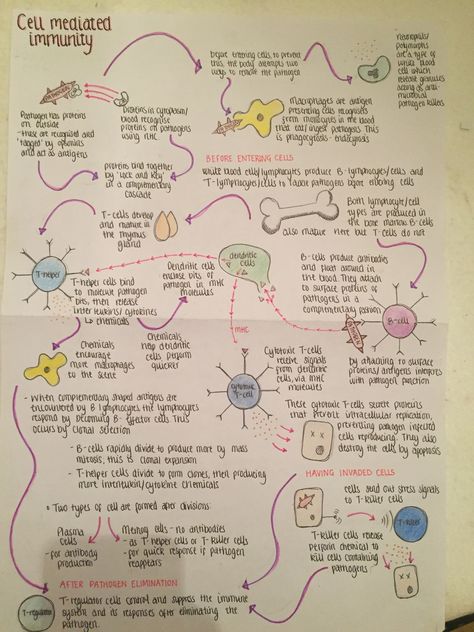 Cell mediated
immunity
PATHOGEN
Pathogen has proteins
on outside
- these are recognised and
'tagged' by opsonins
and act as antigens
proteins in cytoplasm/
blood recognise
proteins on pathogens
using MHC.
proteins bind together
by 'lock and key'
in a complementary
cascade
before entering cells, to prevent
this, the body attempts two
ways to remove the pathogen
neutrophils/
polymorphs
are a type of
white blood
cell which
release granules
acting as anti-
microbial
pathogen killers
Macrophages are antigen
presenting cells recognised
from monocytes in the blood
that eat/ingest pathogens. This
is phagocytosis - endocytosis
BEFORE ENTERING CELLS
white blood cells/lymphocytes produce B-lymphocytes/cells and
T-lymphocytes/cells to
pathogens before entering cells
T-cells develop
and mature in
the thymus
gland
Both lymphocyte/cell
types are produced in
the bone marrow. B-cells
also mature here but T-cells do not
T-helper
T-helper cells bind
to molecule pathogen
bits, then release
interleukins/cytokines
↳ chemicals
Dendritic cells
enclose bits of
pathogen in MHC
molecules
dendritic
cells
B-cells produce antibodies
and float around in
the blood. They attach
to surface proteins of
pathogens in a
complementary pattern
B-cell
PATHOGEN
by attaching to surface
proteins/antigens interferes
with pathogen function
Chemicals
encourage
more macrophages
to the scene
Chemicals
help dendritic
cells perform
quicker
MHC
cytotoxic
T-cell
Cytotoxic T-cells
receive signals
from dendritic
cells, via MHC
molecules
- When complementary shaped antigens are
encountered by B lymphocytes the lymphocytes
respond by becoming B-effector cells. This
occurs by clonal selection
These cytotoxic T-cells secrete proteins
that prevent intracellular replication,
preventing pathogen infected
cells reproducing. They also
destroy the cells by apoptosis
- B-cells rapidly divide to produce more by mass
mitosis, this is clonal expansion
- T-helper cells divide to form clones, then producing
more interleukin/cytokine chemicals
HAVING INVADED CELLS
cells send out stress signals
to T-killer cells
T-killer
T-killer cells release
perforin chemical to
kill cells containing
pathogens
• Two types of cell are formed after divisions:
Plasma
cells
- for antibody
production
Memory cells - no antibodies
- as T-helper cells or T-killer cells
- for quick response if pathogen
reappears
AFTER PATHOGEN ELIMINATION
T-regulator
T-regulator cells control and suppress the immune
system and its responses after eliminating the
pathogen.